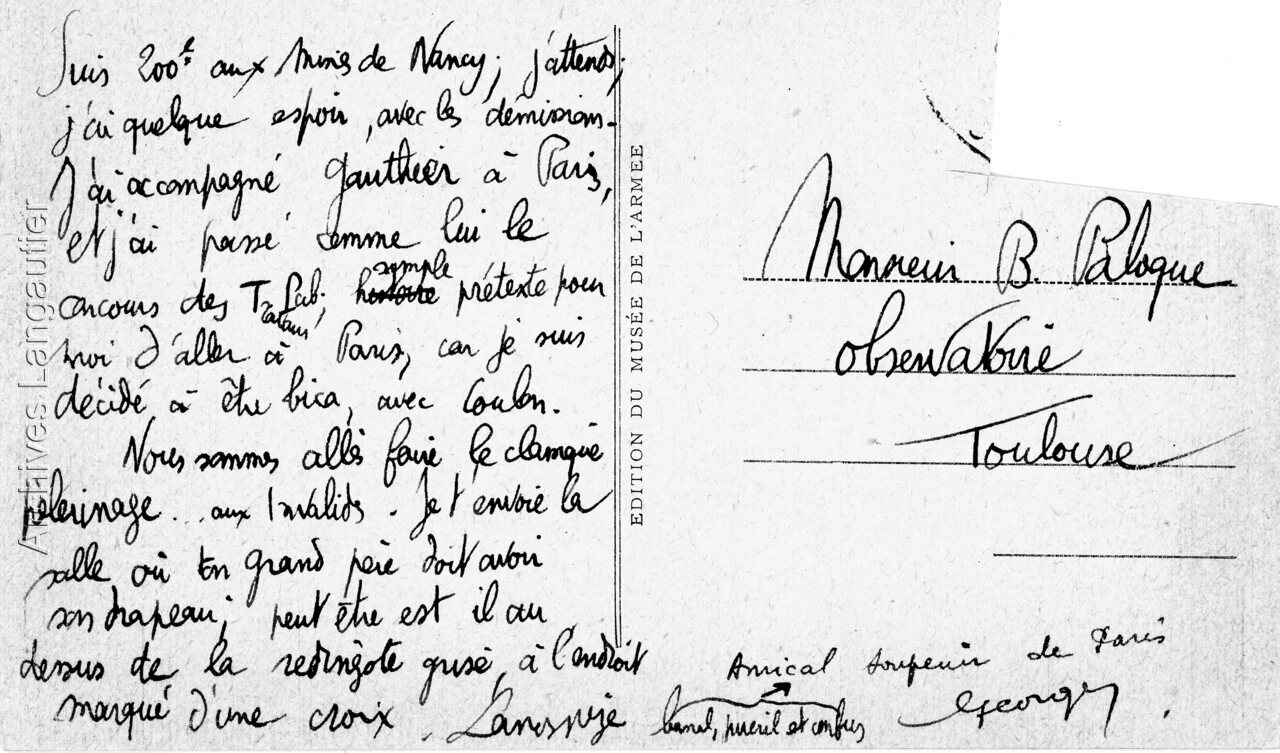 Suis 200e aux Mines de Nancy ; j'attends ;
j'ai quelque espoir, avec les démissions.
J'ai accompagné Gauthier à Paris,
et j'ai passé comme lui le
concours des T. Lab.
simple
prétexte pour
moi d'aller à Paris, car je suis
décidé, à être bica, avec Coulon.
Nous sommes allés faire le classique
pélerinage ... aux Invalides. Je t'envoie la
salle où ton grand père doit avoir
son drapeau ; peut être est il au
dessus de la redingote grise, à l'endroit
marqué d'une croix.
EDITION DU MUSÉE DE L'ARMEE
Monsieur B. Paloque
Observatoire
Toulouse
Amical souvenir de Paris
banal, puéril et confus
Georges
Archives Langautier